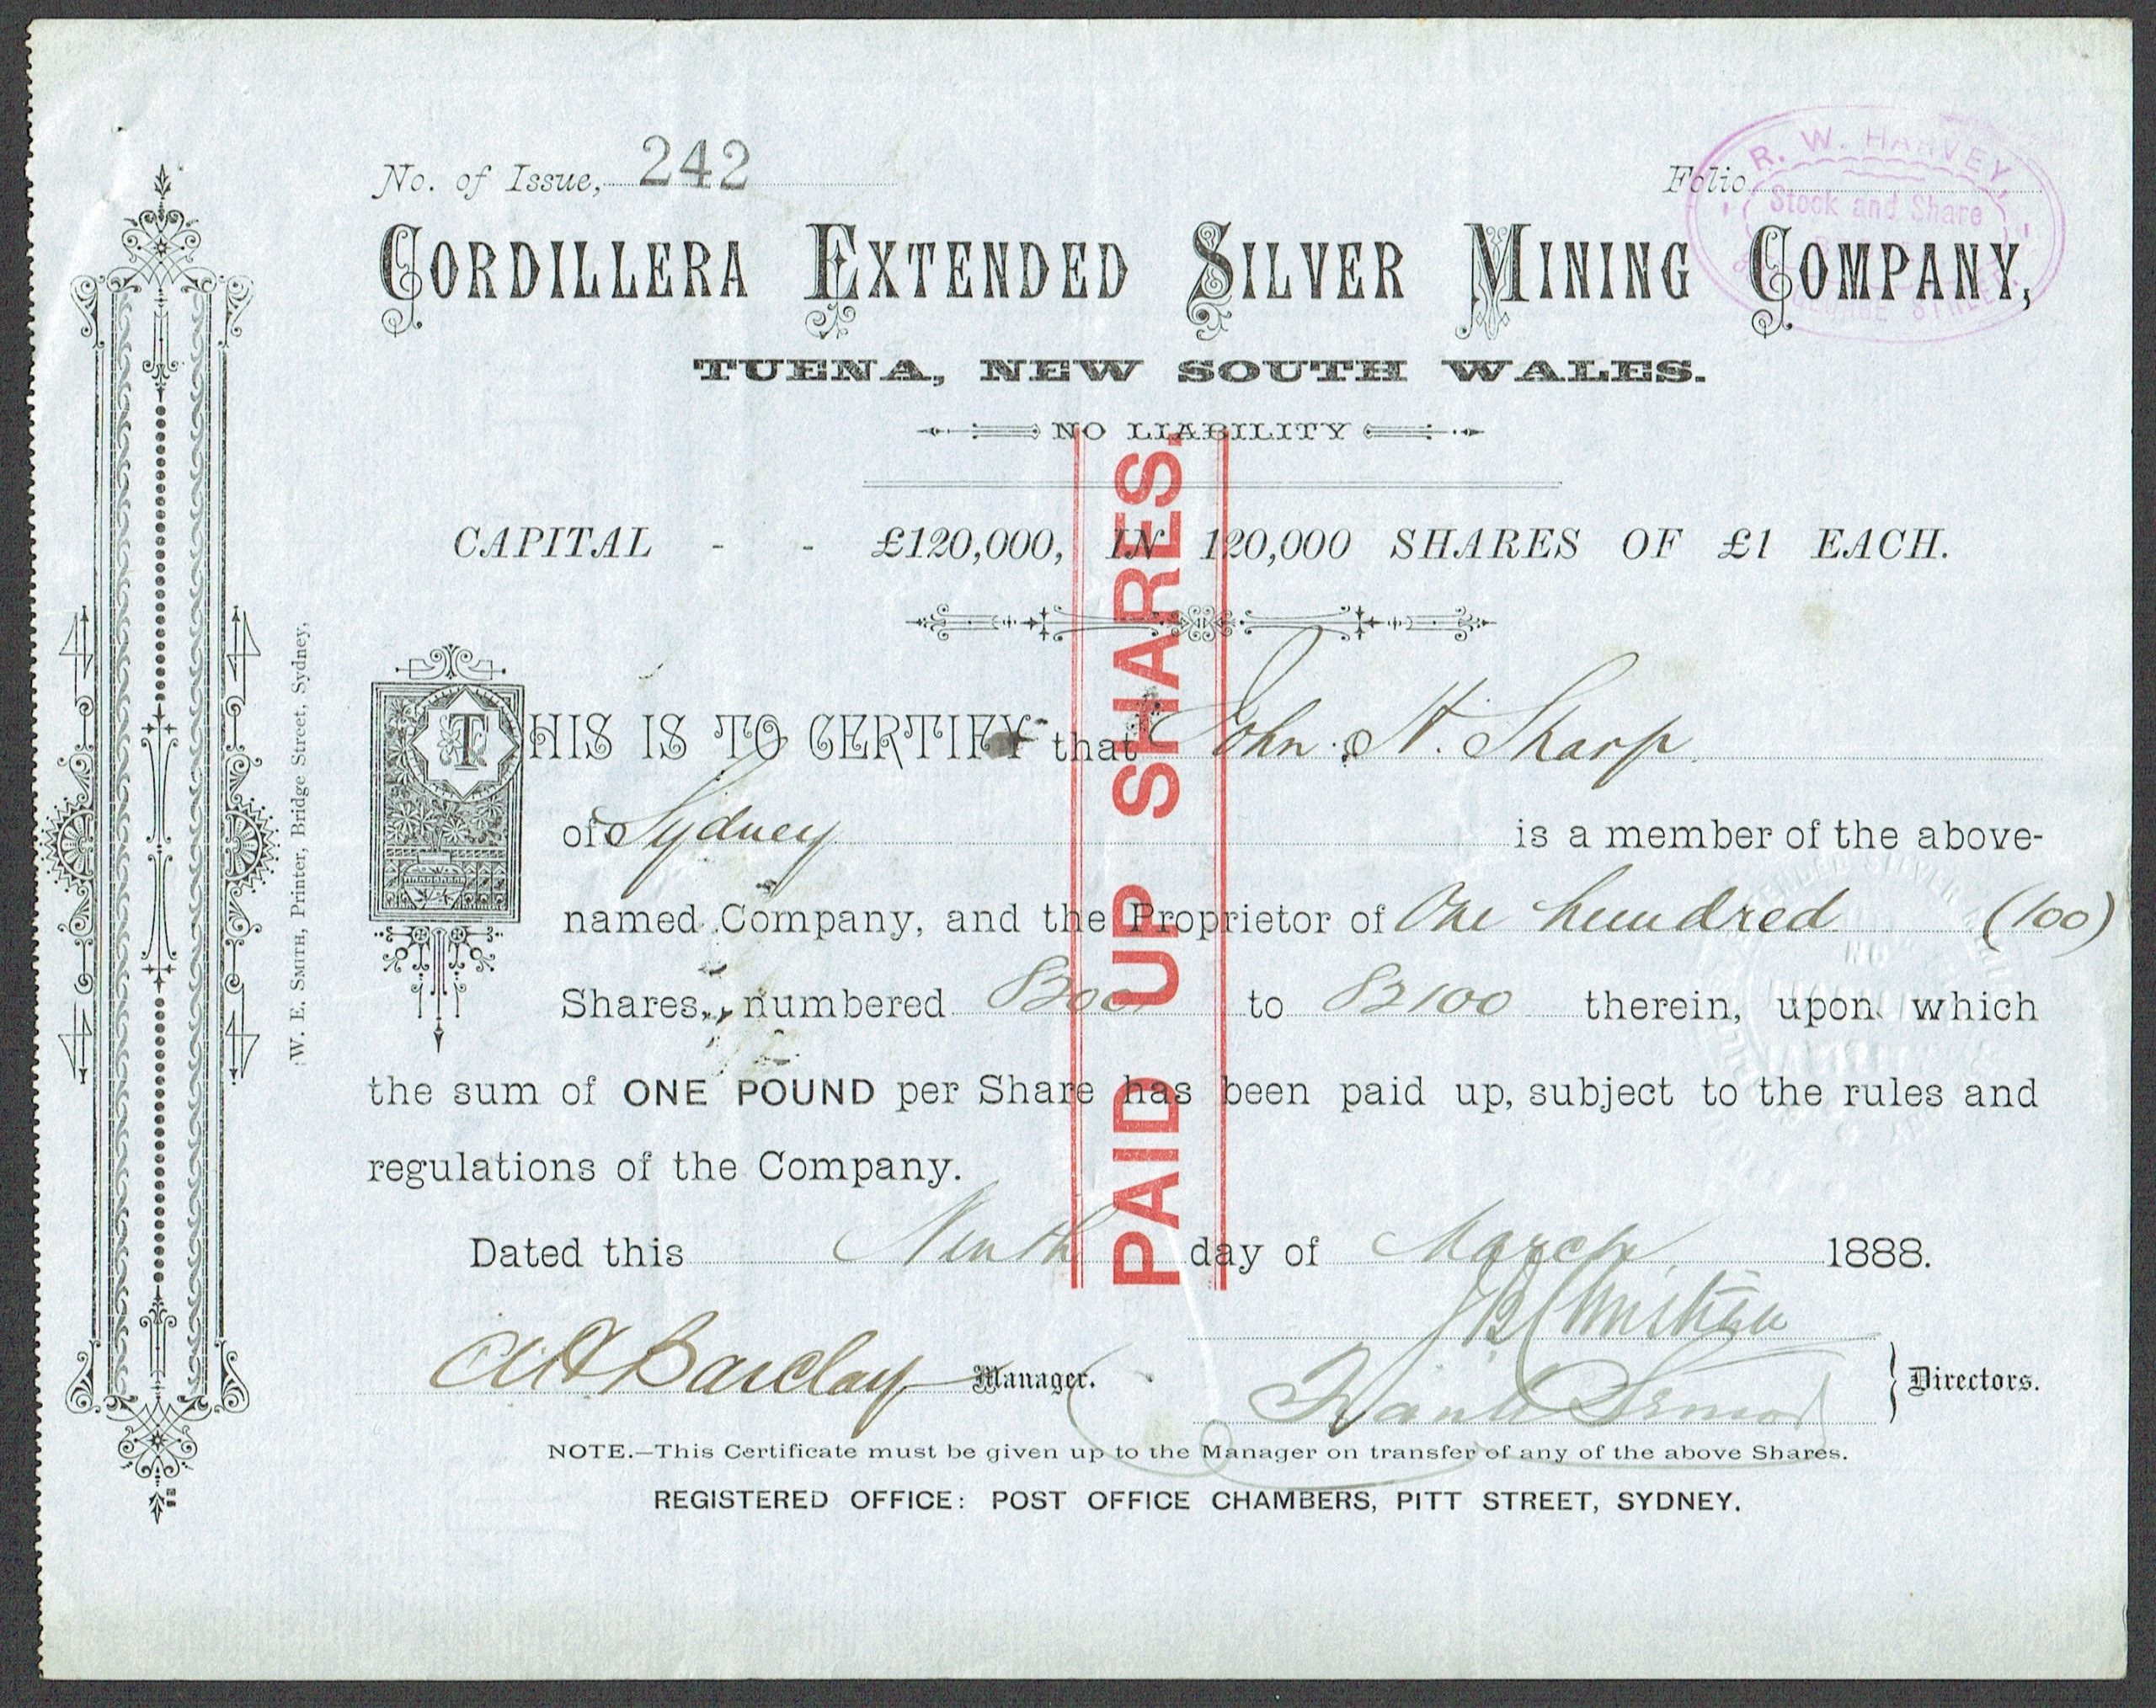 No. of Issue, 242
Folio
R. W. HARVEY,
Stock and Share
CORDILLERA EXTENDED SILVER MINING COMPANY,
TUENA, NEW SOUTH WALES.
NO LIABILITY
CAPITAL - - £120,000, IN 120,000 SHARES OF £1 EACH.
THIS IS TO CERTIFY that John H. Sharp
of Sydney is a member of the above-
named Company, and the Proprietor of One hundred (100)
Shares, numbered to 82100 therein, upon which
the sum of ONE POUND per Share has been paid up, subject to the rules and
regulations of the Company.
Dated this Ninth day of March 1888.
Barclay Manager.
Frank Directors.
NOTE.—This Certificate must be given up to the Manager on transfer of any of the above Shares.
REGISTERED OFFICE: POST OFFICE CHAMBERS, PITT STREET, SYDNEY.
PAID UP SHARES.
W. E. SMITH, Printer, Bridge Street, Sydney,